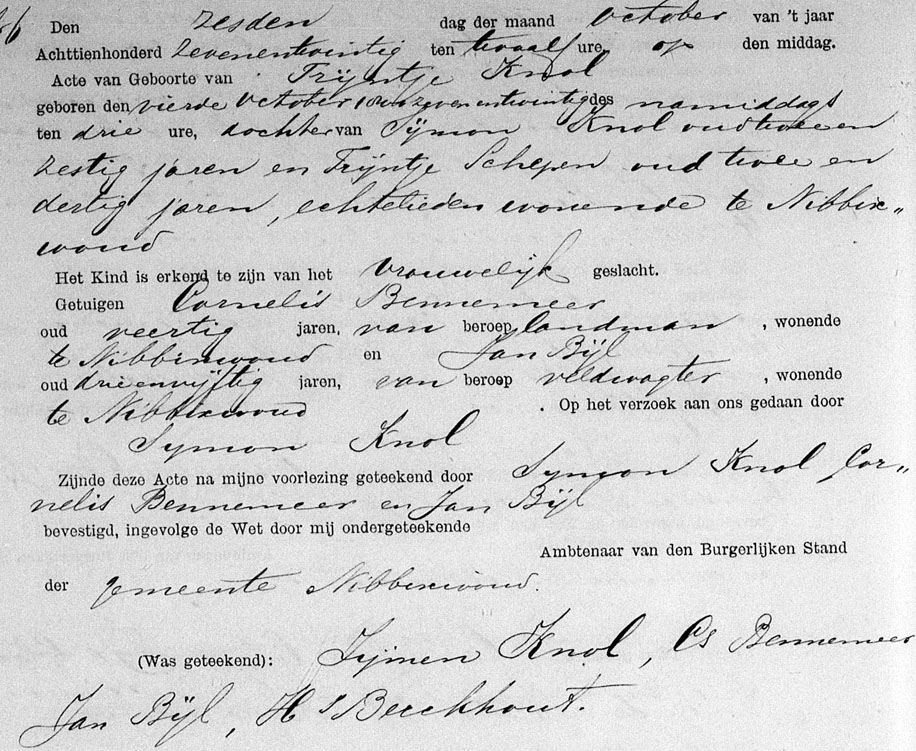 Den zesden dag der maand October van 't jaar
Achttienhonderd Zevenentwintig ten twaalf ure, op den middag.
Acte van Geboorte van Trijntje Knol
geboren den vierde October 18 zevenentwintig des namiddags
ten drie ure, dochter van Sijmon Knol oud twee en
zestig jaren en Trijntje Schepen oud twee en
dertig jaren, echtelieden wonende te Nibbix„
woud
Het Kind is erkend te zijn van het vrouwelijk geslacht.
Getuigen Cornelis Bennemeer
oud veertig jaren, van beroep landman, wonende
te Nibbixwoud en Jan Bijl
oud drieenvijftig jaren, van beroep veldwagter, wonende
te Nibbixwoud. Op het verzoek aan ons gedaan door
Symon Knol
Zijnde deze Acte na mijne voorlezing geteekend door Symon Knol Cor„
nelis Bennemeer en Jan Bijl
bevestigd, ingevolge de Wet door mij ondergeteekende
Ambtenaar van den Burgerlijken Stand
der gemeente Nibbixwoud.
(Was geteekend): Sijmen Knol, Cs Bennemeer
Jan Bijl, Hs Berckhout.